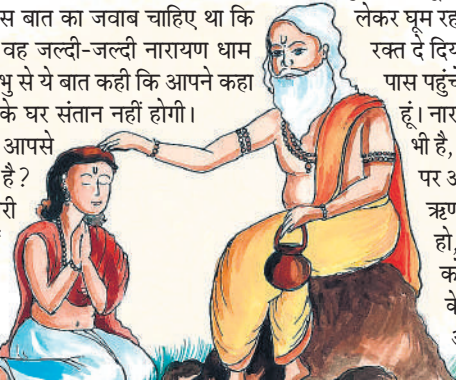 स बात का जवाब चाहिए था कि
वह जल्दी-जल्दी नारायण धाम
भु से ये बात कही कि आपने कहा
के घर संतान नहीं होगी।
आपसे
है?
री
लेकर घूम रह
रक्त दे दिय
पास पहुंचे
हूं। नार
भी है,
पर अ
ऋण
हो,
के